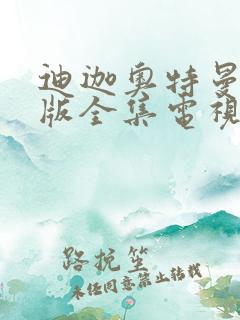 迪迦奥特曼
版全集电视
路抗笙
未经同意禁止转载